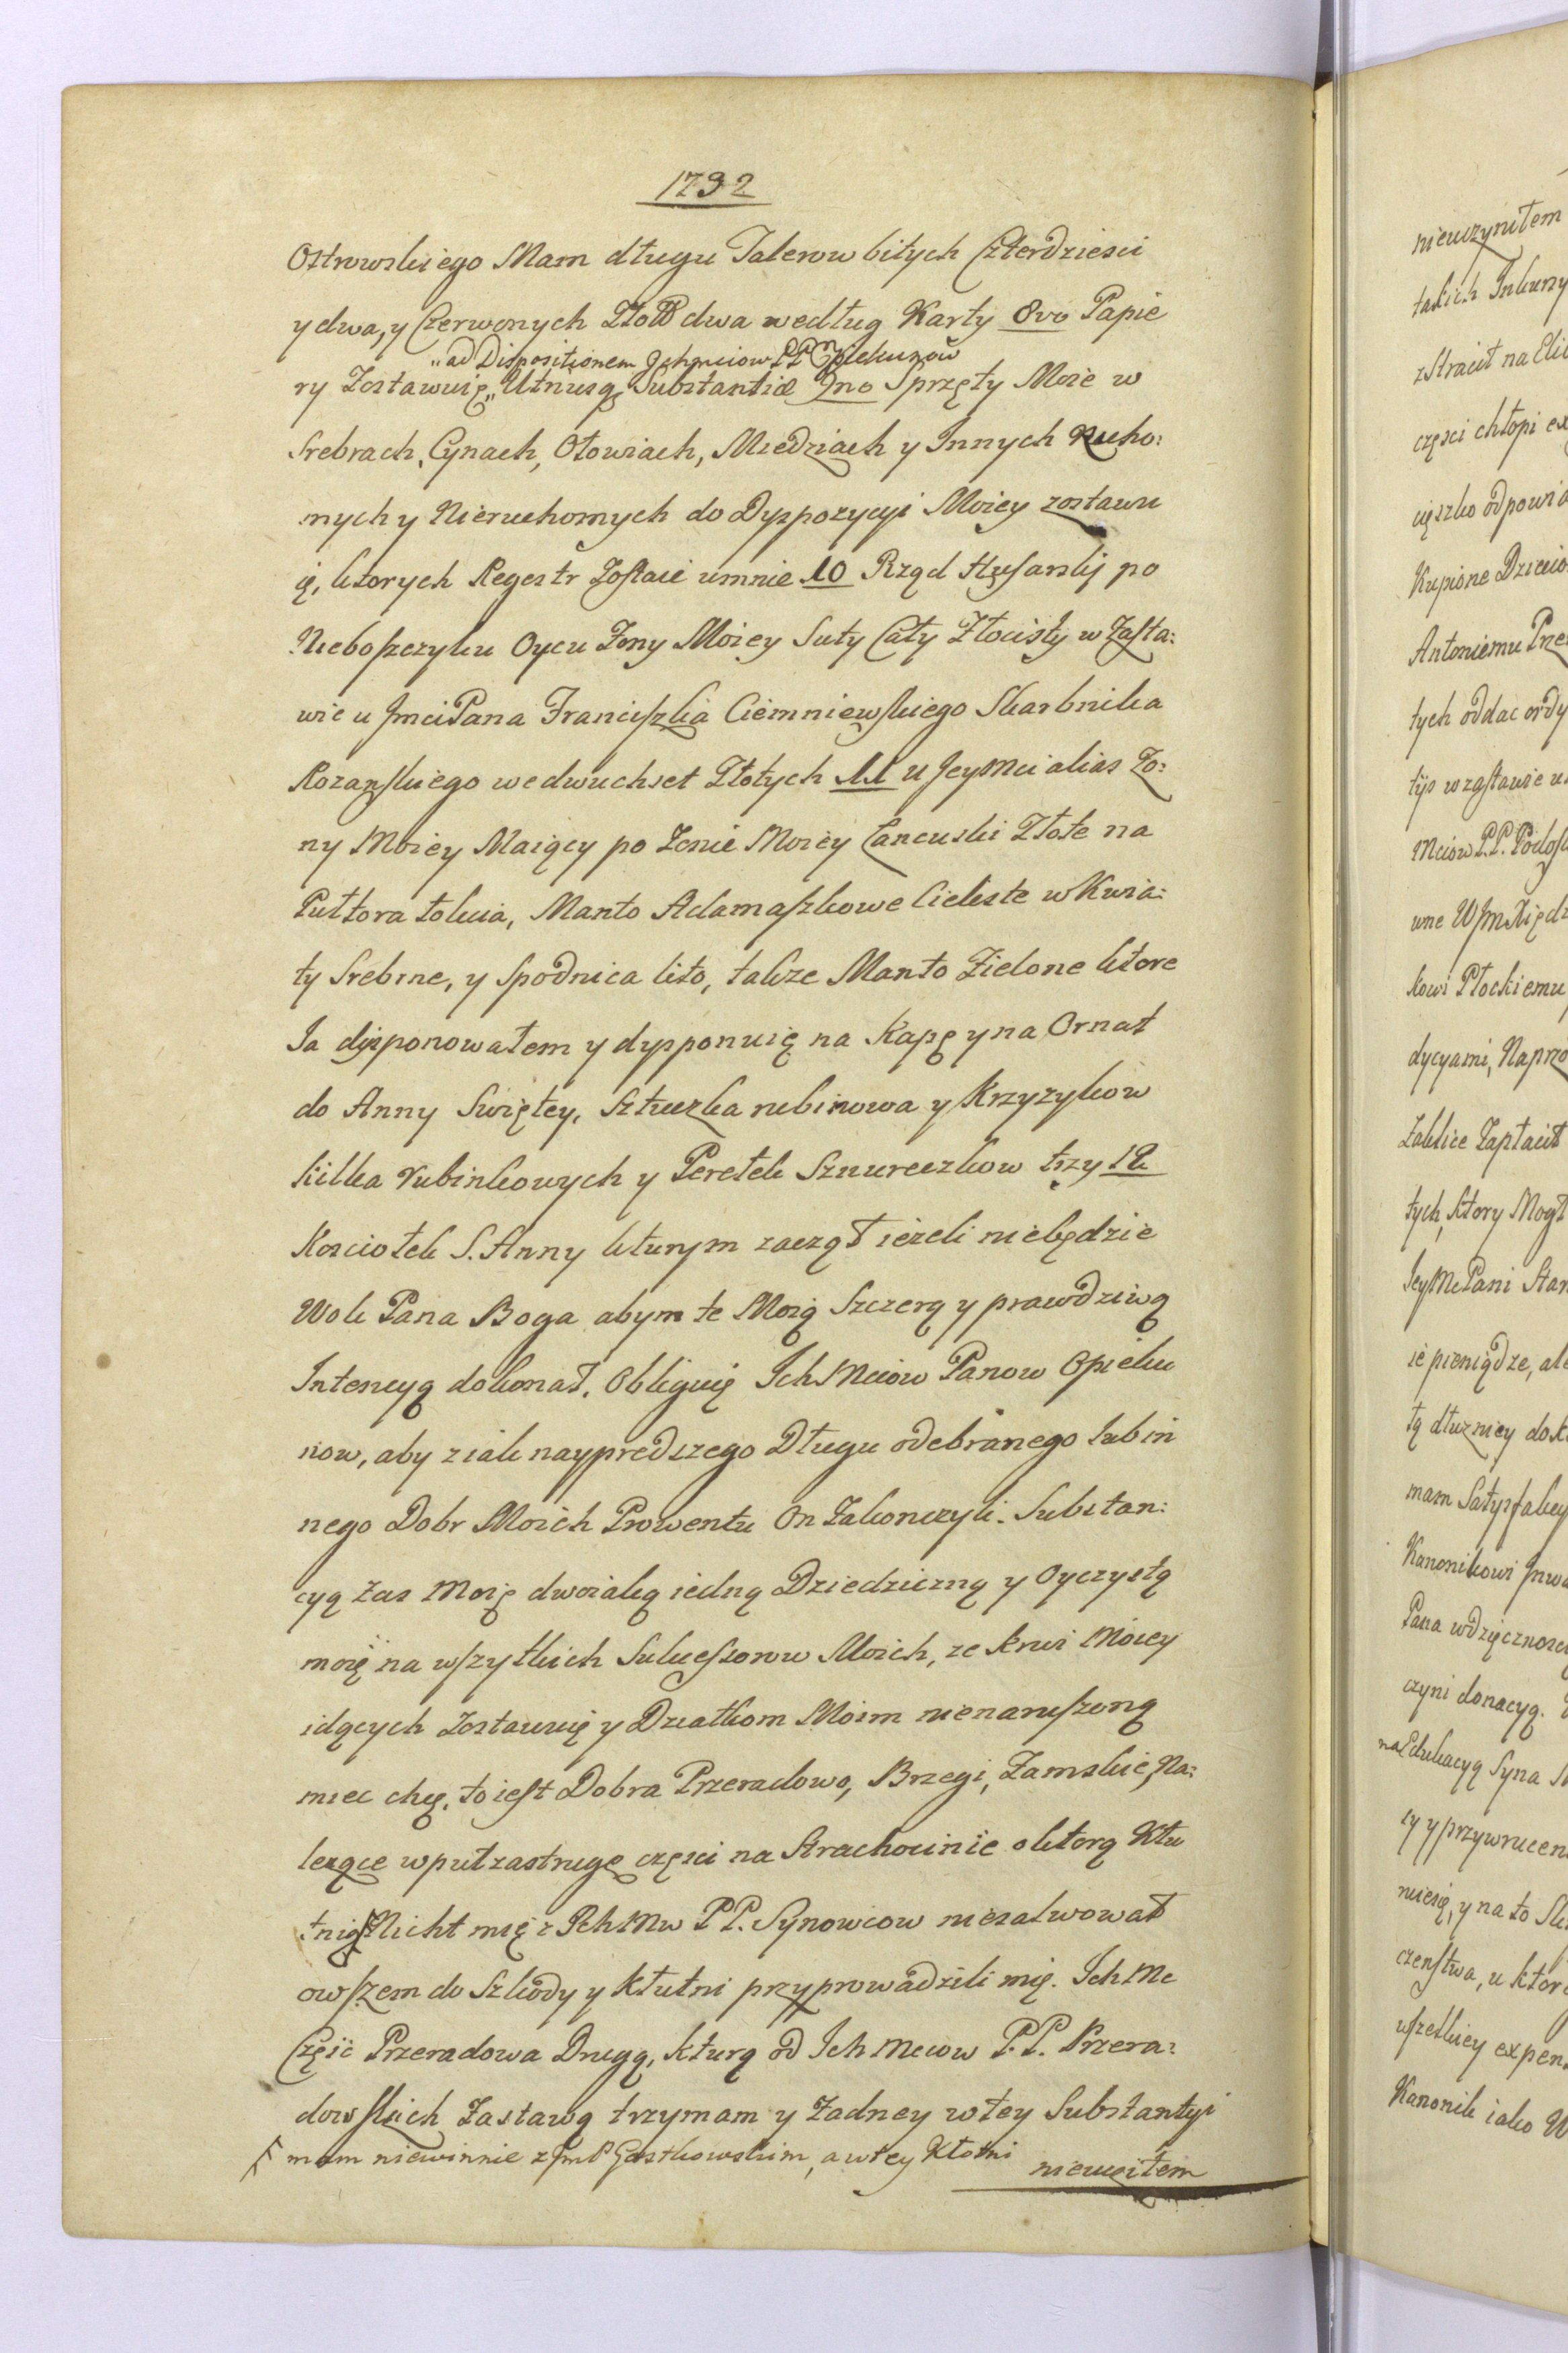 1792
Ostrowskiego Mam długu Talerow bitych Czterdziesci
y dwa, y Czerwonych Złott dwa według Karty 8vo Papie
"ad Dispositionem Ichmciow PP Opiekunow
ry Zostawuię "Utriusq Substantiæ 9no Sprzęty Moie w
Srebrach, Cynach, Ołowiach, Miedziach y Innych Rucho:
mych y Nieruchomych do Dyspozycyi Moiey zostawu
ię, ktorych Regestr Zostaie umnie 10 Rząd Husarskj po
Nieboszczyku Oycu Zony Moiey Suty Cały Złocisty w Zasta:
wie u JmciPana Franciszka Ciemniewskiego Skarbnika
Rozanskiego wedwuchset Złotych 11 u Jeymci alias Zo:
ny Moiey Maiący po Zonie Moiey Łancuski Złote na
Puttora tokcia, Manto Adamaszkowe Cieliste w Kwia:
ty Srebrne, y Spodnica lito, takze Manto Zielone ktore
Ja dysponowałem y dypponuię na Kapę y na Ornat
do Anny Swiętey, Sztuczka rubinowa y Krzyzykow
kilka rubinkowych y Perełek Sznureczkow trzy 12
Kosciołek S. Anny kturym zaczął iezeli niebędzie
Wola Pana Boga abym te Moią Szczerą y prawdziwą
Intencyą dokonał, Obliguię Ich Mciow Panow Opieku
now, aby ziak naypredszego Długu odebranego lub in
nego Dobr Moich Prowentu On Zakonczyli. Substan:
cyą zas Moię dwoiaką iedną Dziedziczną y Oyczystą
moię na wszytkich Sukcessorow Moich, ze krwi Moiey
idących Zostawuię y Dziatkom Moim nienaruszoną
miec chcę, to iest Dobra Przeradowo, Brzegi, Zamskie, Na:
lezące wputzastrugę częsci na Strachocinie o ktorą Ktu
tnią Nicht mię z Ich Mw PP. Synowcow niesalwował
owszem do Szkody y Ktutni przyprowadzili mię. Ich Mc
Częśc Przeradowa Drugą, kturą od Ich Mciow P.P. Przera:
dowskich Zastawą trzymam y Zadney w tey Substantyi
mam niewinnie z JmP Gostkowskim, a w tey Ktotni
nieuczitem
nieuczynitem
takich
zStracit na
częsci chłopi
cięszko
Kupione
Antoniemu
tych oddac
w zastawie
Mciow P.P.
kowi Płockiemu
dycyami,
Zaptacit
tych, ktory
JeyMcPani
ie pieniądze,
tą dłuzniey
mam
Kanonikowi
Pana
czyni donacyą.
na Edukacyą Syna
nieią, y na to
czenstwa, u
wszetkiey
Kanonik iako